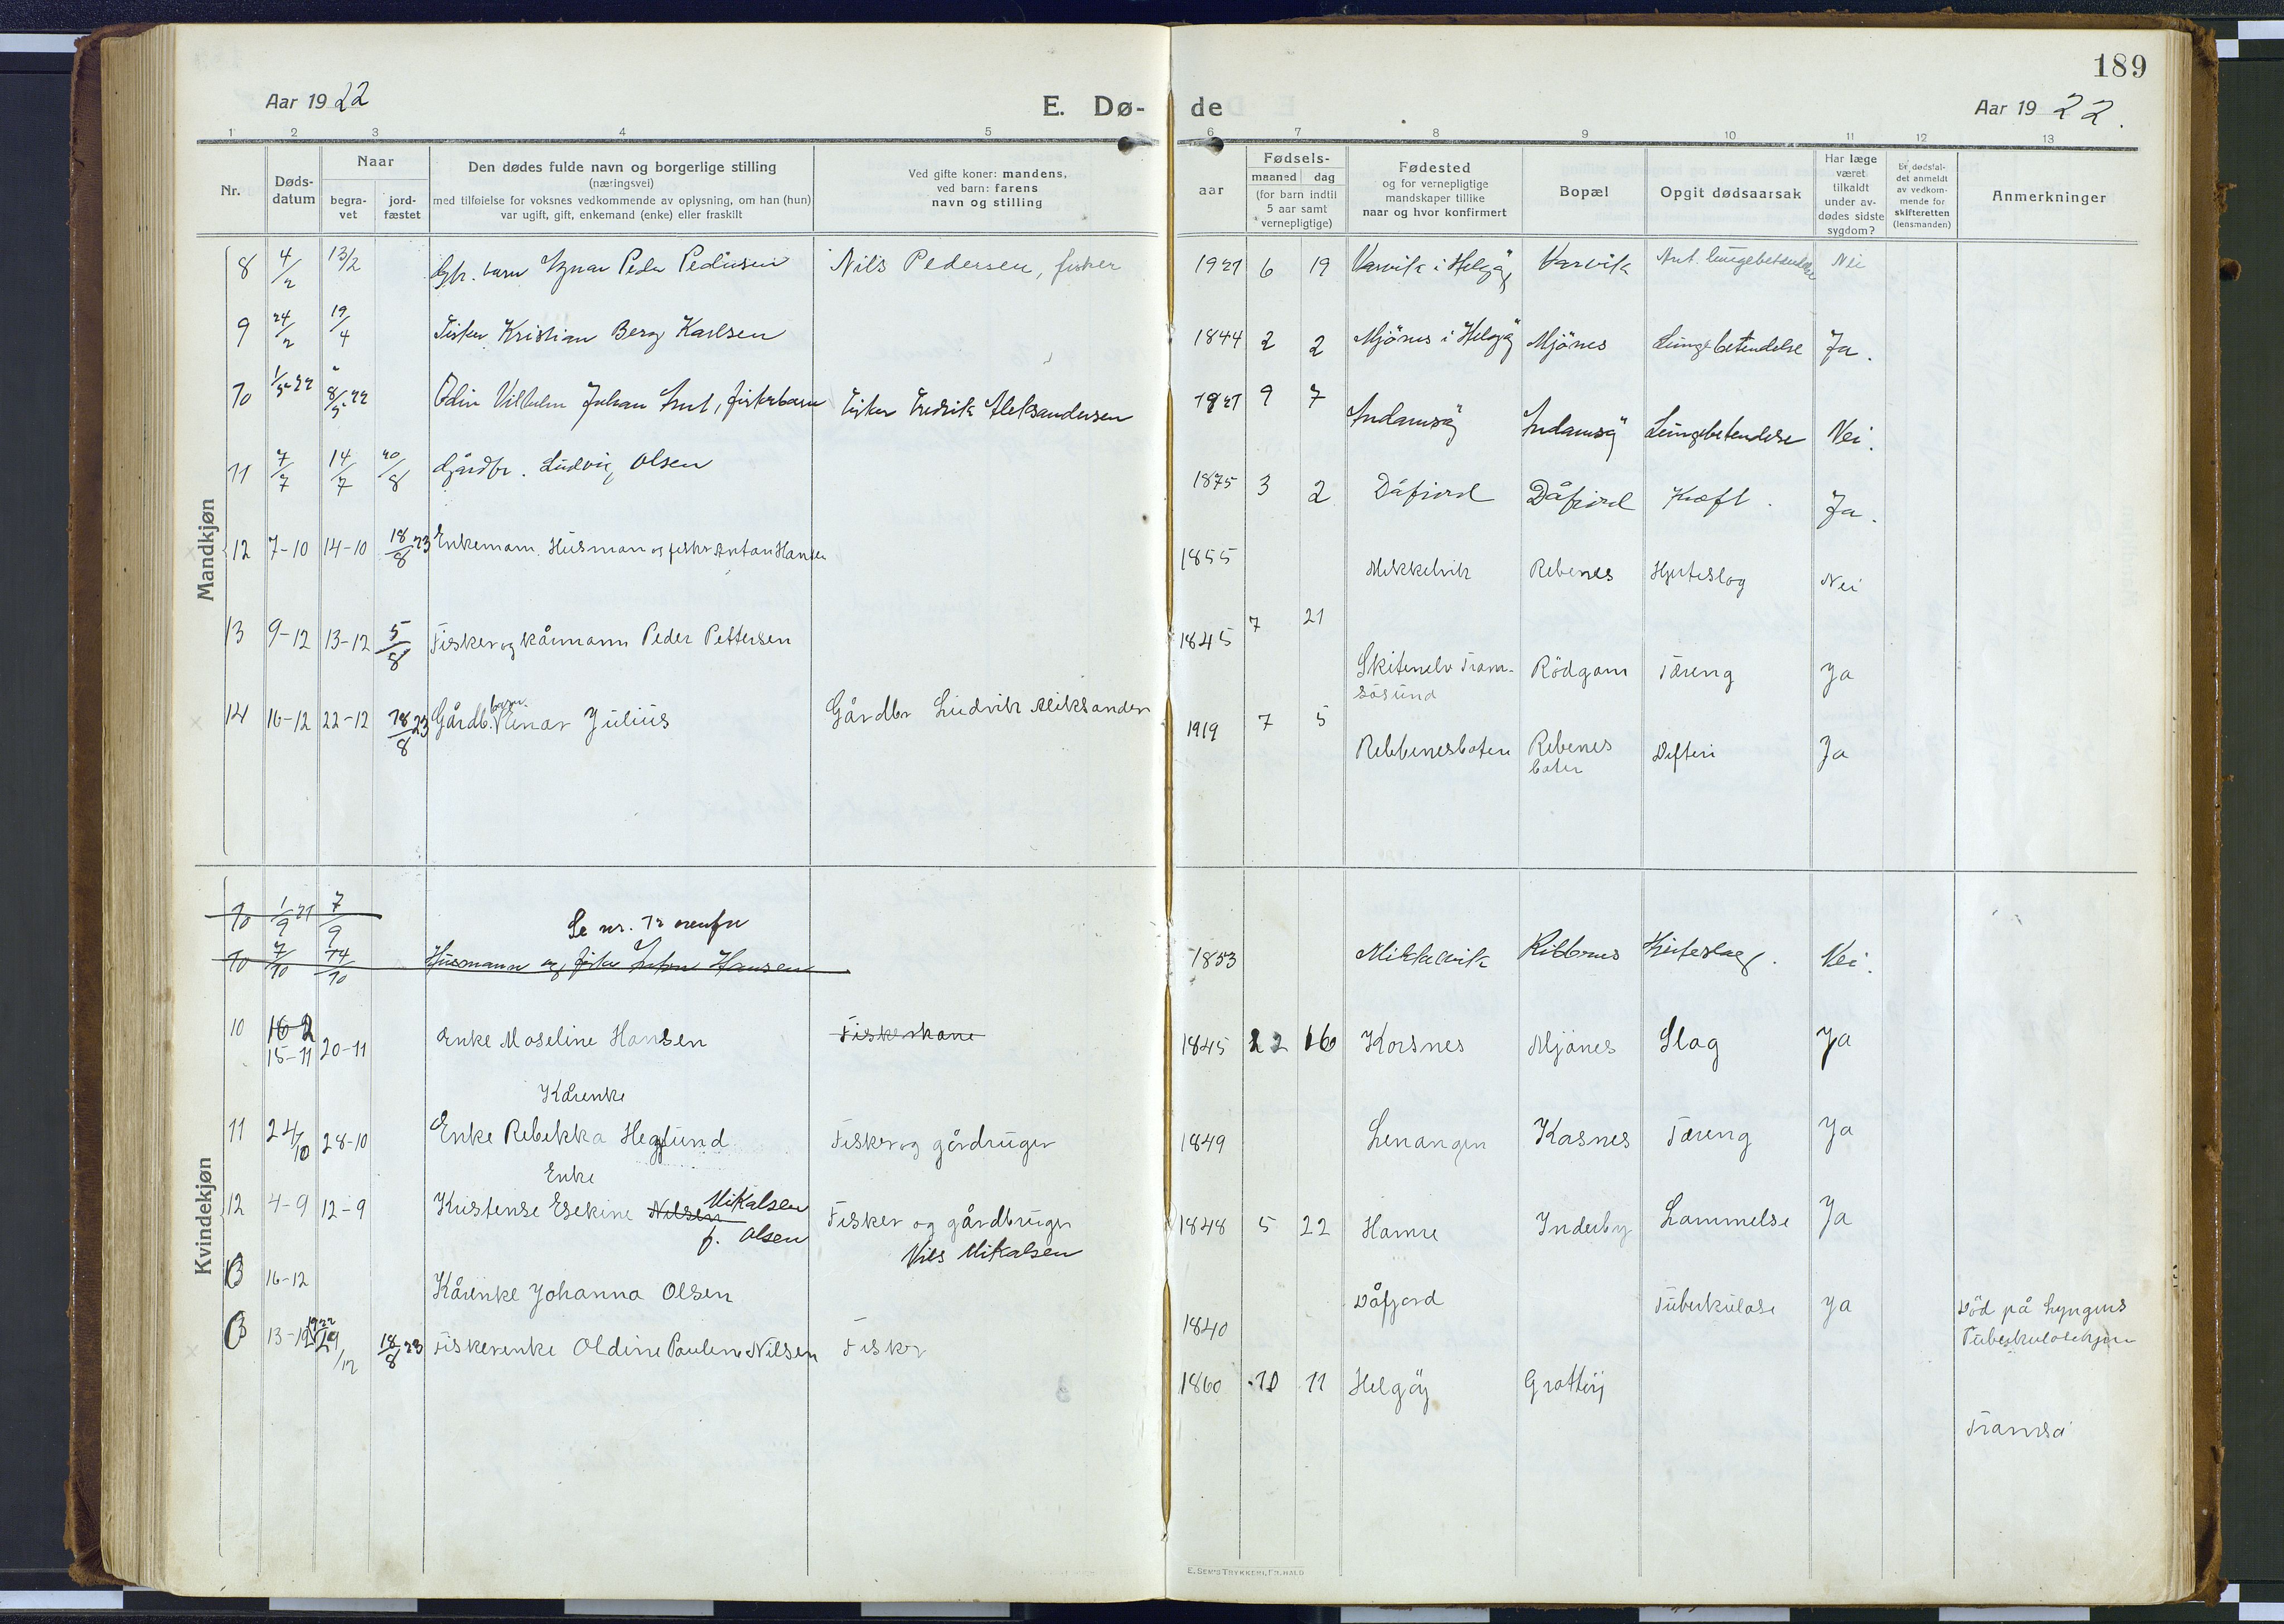 189
Aar 1922
E. Dø-
de
Aar 1922.
1 2 3 4 5 6 7 8 9 10 11 12 13
Nr.
Døds-
datum
Naar
begra-
vet
jord-
fæstet
Den dødes fulde navn og borgerlige stilling
(næringsvei)
med tilføielse for voksnes vedkommende av oplysning, om han (hun)
var ugift, gift, enkemand (enke) eller fraskilt
Ved gifte koner: mandens,
ved barn: farens
navn og stilling
aar
Fødsels-
maaned dag
(for barn indtil
5 aar samt
vernepligtige)
Fødested
og for vernepligtige
mandskaper tillike
naar og hvor konfirmert
Bopæl
Opgit dødsaarsak
Har læge
været
tilkaldt
under av-
dødes sidste
sygdom?
Er dødsfal-
det anmeldt
av vedkom-
mende for
skifteretten
(lensmanden)
Anmerkninger
Mandkjøn
8 4/2 13/2 Gbr. barn Peder Pedersen Nils Pedersen, fisker 1921 6 19 Karvik i Helgöy Karvik Ant. lungebetændelse Nei
9 24/2 19/4 Fisker Kristian Berg Karlsen 1844 2 2 Mjönes i Helgöy Mjönes Lungebetendelse Ja.
10 1/5-22 8/5-22 Odin Vilhelm Johan Arnt, fiskerbarn Fisker Fredrik Aleksandersen 1921 9 7 Andamsöy Andamsöy Lungebetendelse Nei.
11 7/7 14/7 20/8 Gårdbr. Ludvig Olsen 1875 3 2 Dåfjord Dåfjord Kræft. Ja.
12 7-10 14-10 18/8 23 Enkemann. Husmann og fisker Anton Hansen 1855 Mikkelvik Rebenes Hjerteslag Nei
13 9-12 13-12 5/8 Fisker og kårmann Peder Pettersen 1845 7 21 Skitenelv Trom-
sösund Rödgam Tæreng Ja
14 16-12 22-12 18/8 23 Gårdb. barn Einar Julius Gårdbr Ludvik Aleksander 1919 7 5 Rebbenesboten Rebenes
boten Difteri Ja
Kvindekjøn
10 1/9 21 7/9
Se nr. 12 ovenfor
10 7/10 14/10 Husmann og fisker Anton Hansen 1853 Mikkelvik Ribbenes Hjerteslag. Nei.
10 16-2
15-11 20-11 Enke Moseline Hansen Fiskerkone 1845 22 16 Korsnes Mjönes Slag Ja
Kårenke
11 24/10 28-10 Enke Rebekka Heglund Fisker og gårdruger 1849 Lenangen Kasnes Tæreng Ja
Enke
12 4-9 12-9 Kristense Esekine Nilsen Mikalsen
f. Olsen
Fisker og gårdbruger
Nils Mikalsen 1848 5 22 Hamre Inderby Lammelse Ja
13 16-12 Kårenke Johanna Olsen 1840 Dåfjord Tuberkulose Ja Död på Lyngens
Tuberkulosehjem
13-12 1922 19/12 18/8 23 Fiskerenke Oldine Pauline Nilsen Fisker 1860 10 11 Helgöy Grottöy
Tromsö
E. SEM'S TRYKKERI, FR.HALD